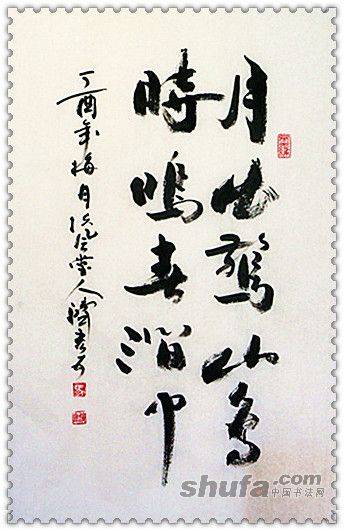 月出驚山鳥
時鳴春澗中
丁酉年梅月
shufa.com
中国书法网